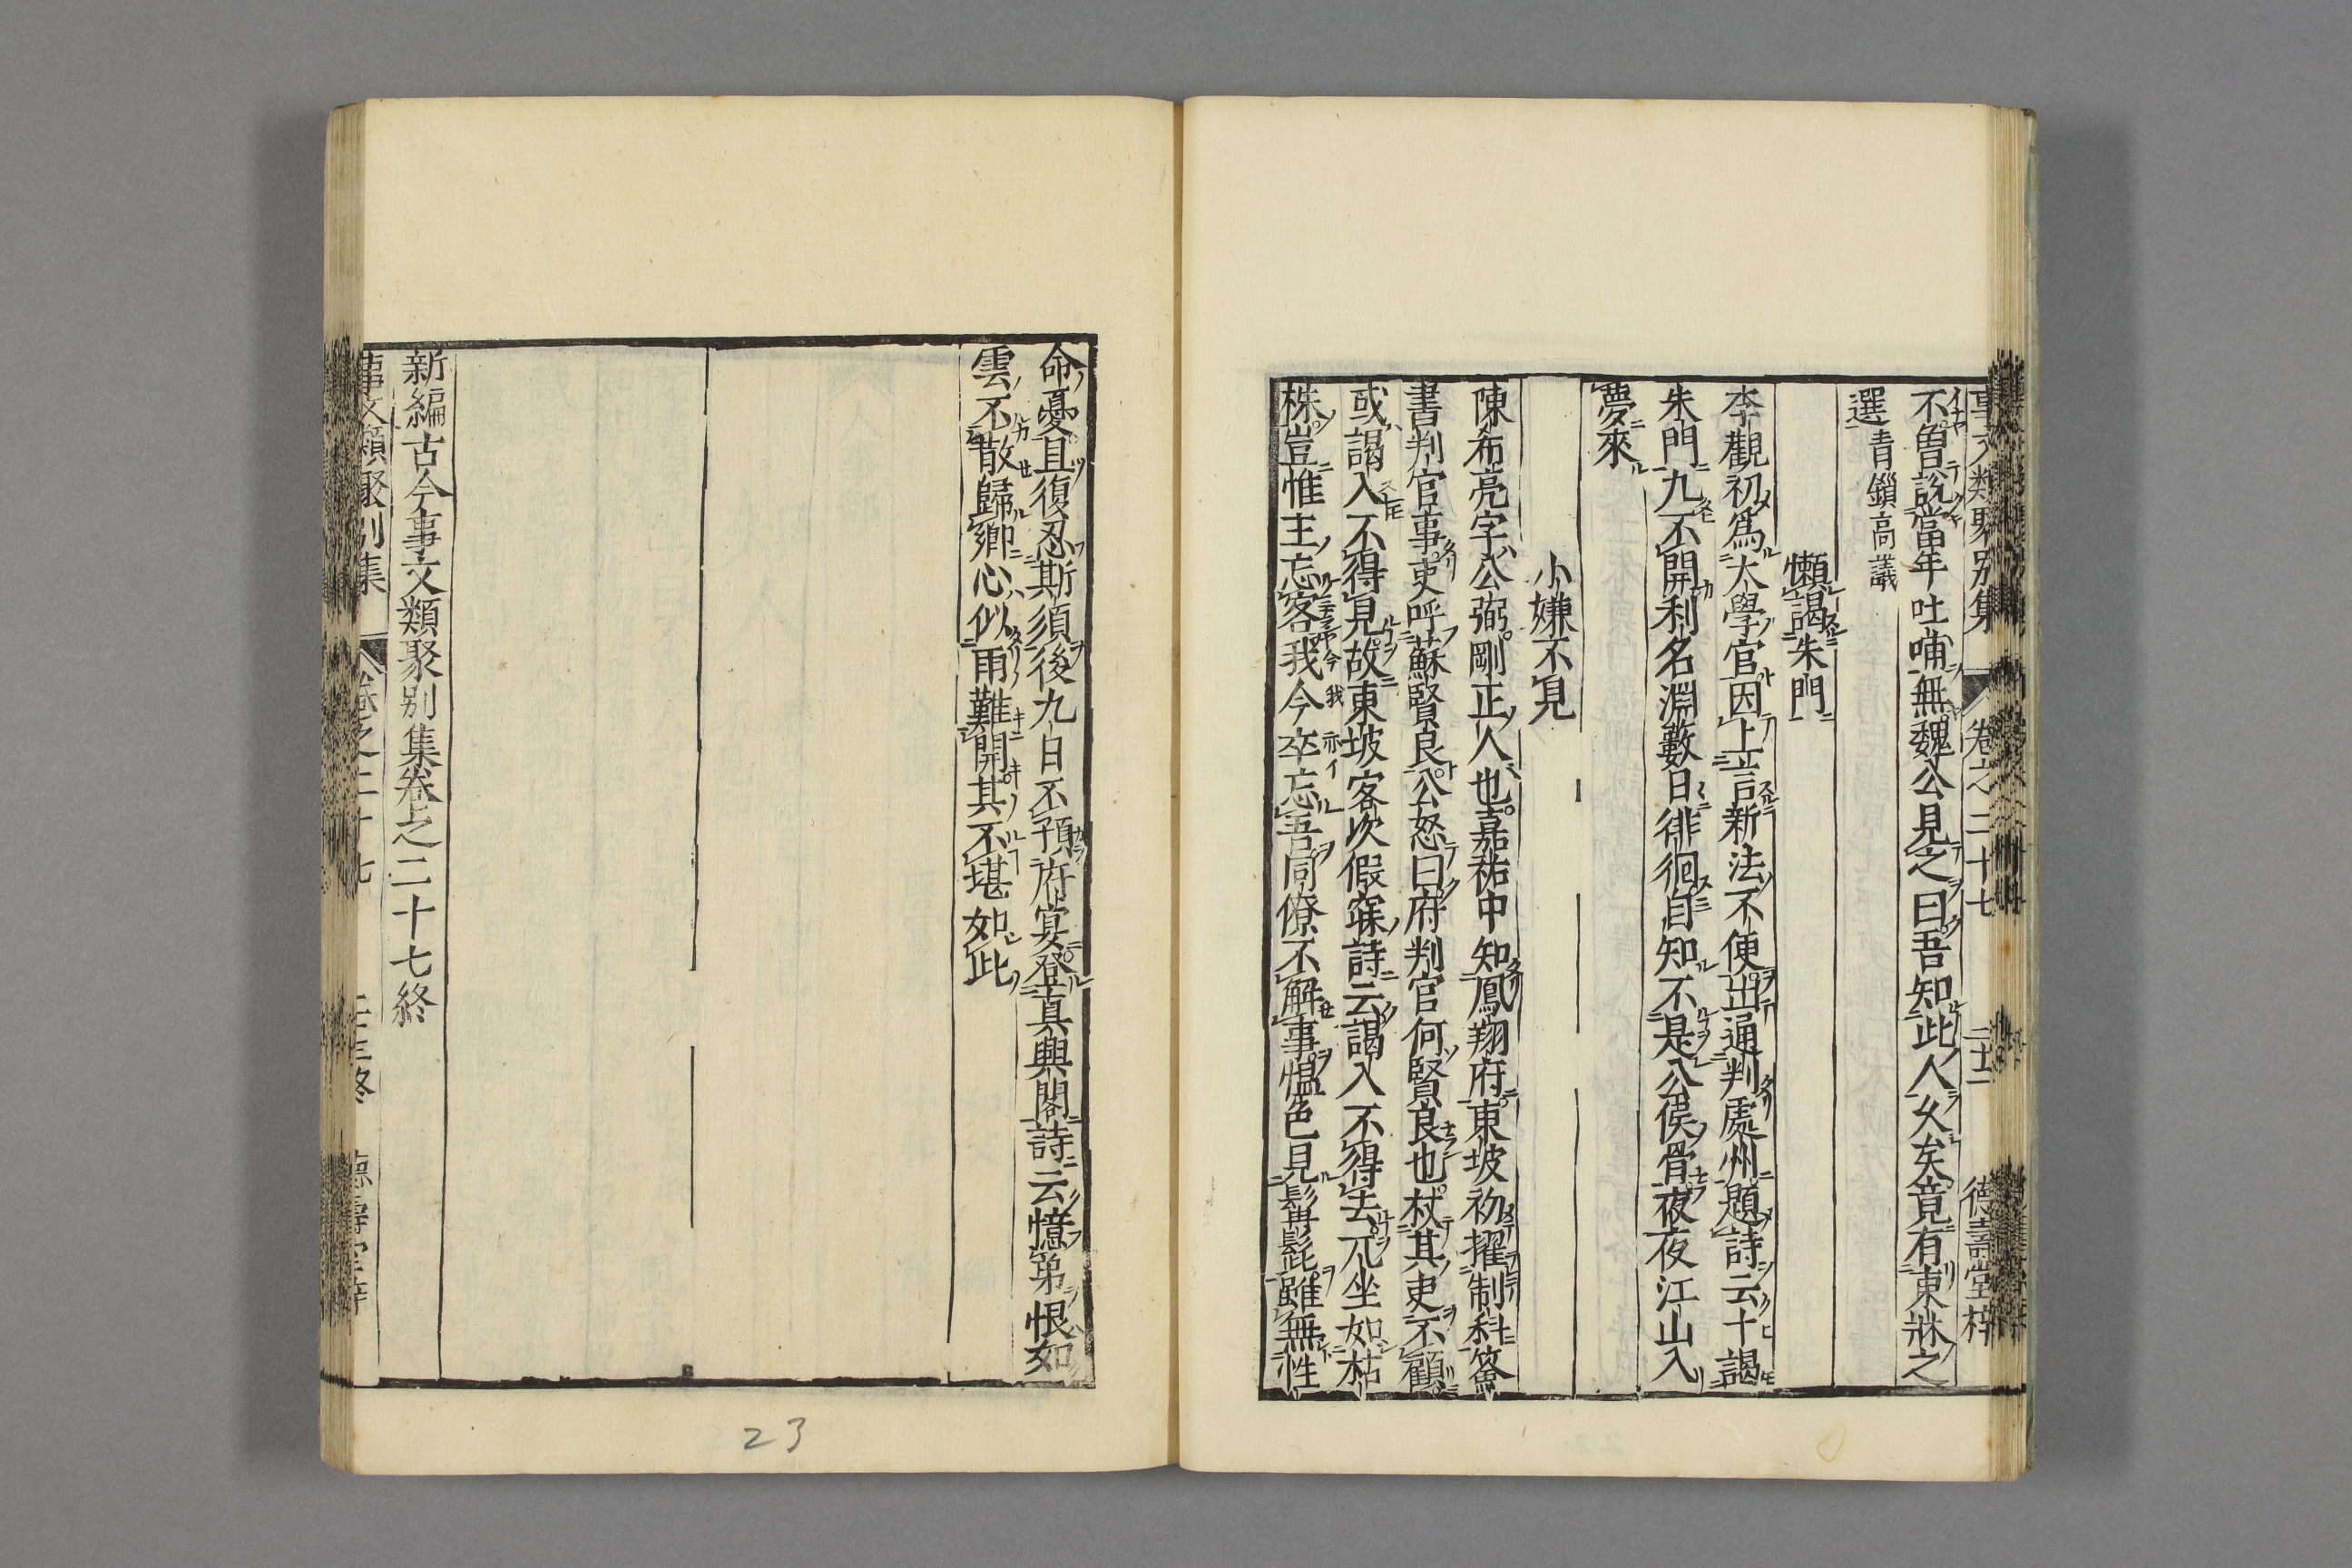 事文類聚別集 卷之二十七 二十二 德壽堂梓
不曾說當年吐哺無魏公見之曰吾知此人久矣竟有東牀之
選 青鎻高議
懶謁朱門
李觀初爲大學官因上言新法不便出通判處州題詩云十謁
朱門九不開利名淵藪日徘徊自知不是公侯骨夜夜江山入
夢來
小嫌不見
陳布亮字公弼剛正人也嘉祐中知鳳翔府東坡初擢制科簽
書判官事吏呼蘇賢良公怒曰府判官何賢良也杖其吏不顧
或謁入不得見故東坡客次假寐詩云謁入不得去兀坐如枯
株豈惟主忘客我今卒忘吾同僚不解事慍色見髯髭雖無性
命憂且復忍斯須後九日不預府宴登眞興閣詩云憶弟恨如
雲不散歸鄉心似雨難開其不堪如此
新編古今事文類聚別集卷之二十七終
事文類聚別集 卷之二十七
23